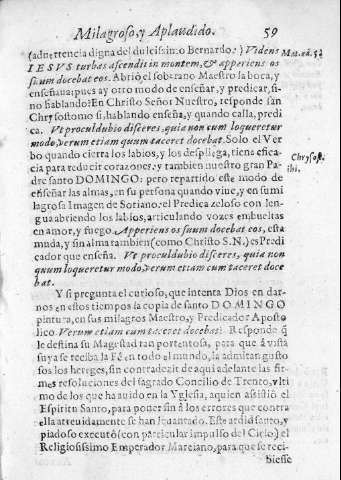 Milagroso, y Aplaudido. 59
(aduertencia digna del dulcissimo Bernardo:) Videns Mat. cã. 5.
IESVS turbas ascendit in montem, & apperiens os
suum docebat eos. Abriò el soberano Maestro la boca, y
enseñaua; pues ay otro modo de enseñar, y predicar, si-
no hablando? En Christo Señor Nuestro, responde san
Chrysostomo si, hablando enseña, y quando calla, predi
ca. Vt proculdubio disceres, quia non cum loqueretur
modo, verum etiam quum taceret docebat. Solo el Ver
bo quando cierra los labios, y los despliega, tiene efica-
cia para reducir coraçones, y tambien nuestro gran Pa
dre santo DOMINGO: pero repartido este modo de
enseñar las almas, en su persona quando viue, y en su mi
lagrosa Imagen de Soriano: el Predica zeloso con len-
gua abriendo los labios, articulando vozes embueltas
en amor, y fuego. Apperiens os suum docebat eos, esta
muda, y sin alma tambien (como Christo S.N.) es Predi
cador que enseña. Vt proculdubio disceres, quia non
quum loqueretur modo, verum etiam cum taceret doce
bat.
Chrysost. ibi.
Y si pregunta el curioso, que intenta Dios en dar-
nos en estos tiempos la copia de santo DOMINGO
pintura, en sus milagros Maestro, y Predicador Aposto
lico. Verum etiam cum taceret docebat: Responde q̃
le destina su Magestad tan portentosa, para que à vista
suya se reciba la Fè en todo el mundo, la admitan gusto
sos los hereges, sin contradezir de aqui adelante las fir-
mes resoluciones del sagrado Concilio de Trento, vlti
mo de los que ha auido en la Yglesia, aquien assistiò el
Espiritu Santo, para poner fin à los errores que contra
ella atreuidamente se han leuantado. Este ardid santo, y
piadoso executò (con particular impulso del Cielo) el
Religiosissimo Emperador Marciano, para que se reci-
biesse